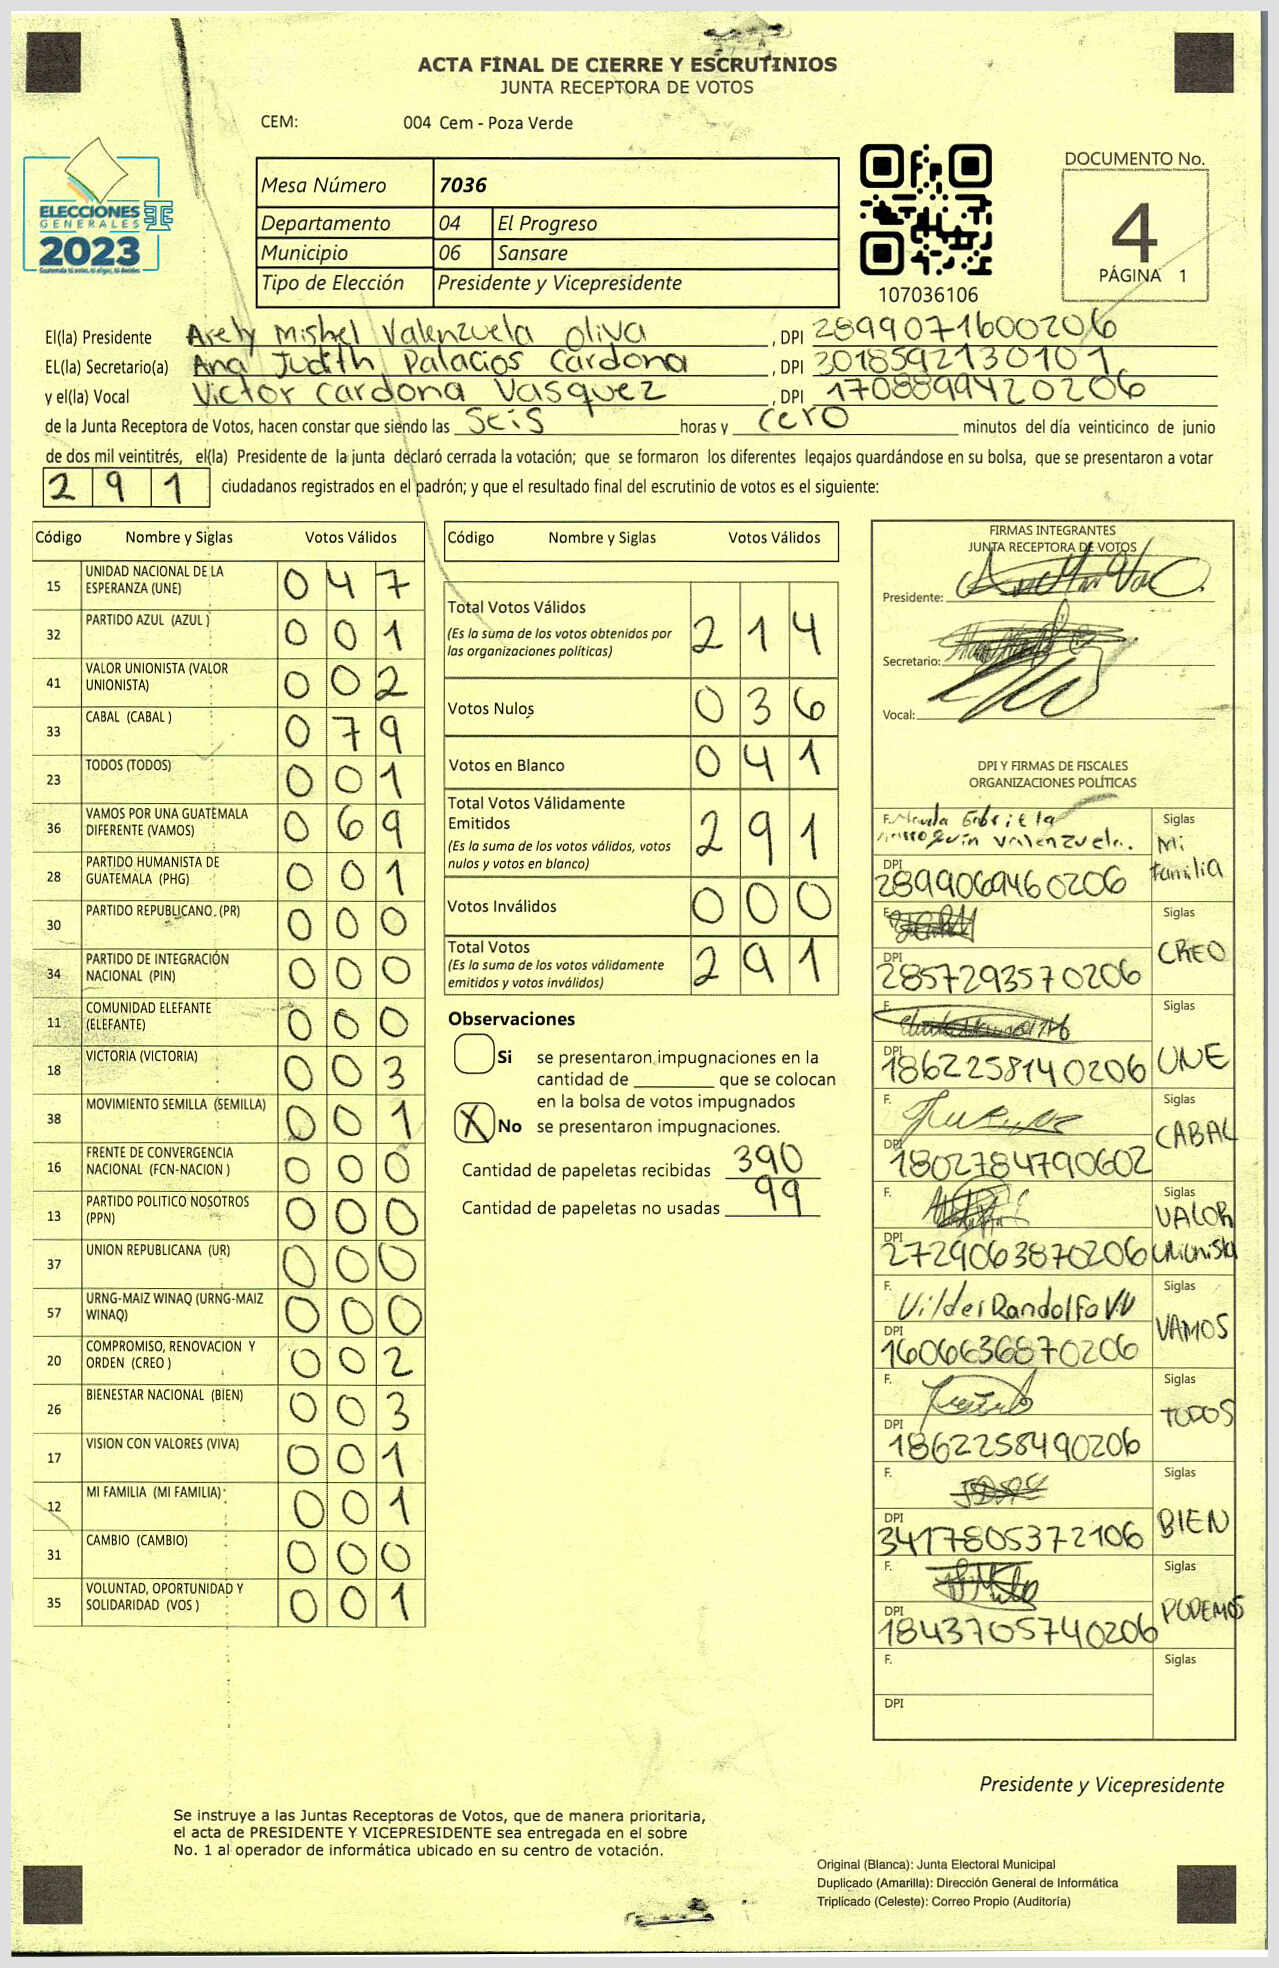 ACTA FINAL DE CIERRE Y ESCRUTINIOS
JUNTA RECEPTORA DE VOTOS
CEM: 004 Cem - Poza Verde
ELECCIONES
GENERALES
2023
Mesa Número 7036
Departamento 04 El Progreso
Municipio 06 Sansare
Tipo de Elección Presidente y Vicepresidente
107036106
DOCUMENTO No.
4
PÁGINA 1
El(la) Presidente Arely Mishel Valenzuela Oliva , DPI 2899071600206
EL(la) Secretario(a) Ana Judith Palacios Cardona , DPI 3018592130101
y el(la) Vocal Victor Cardona Vasquez , DPI 1708899420206
de la Junta Receptora de Votos, hacen constar que siendo las seis horas y cero minutos del día veinticinco de junio
de dos mil veintitrés, el(la) Presidente de la junta declaró cerrada la votación; que se formaron los diferentes legajos guardándose en su bolsa, que se presentaron a votar
291 ciudadanos registrados en el padrón; y que el resultado final del escrutinio de votos es el siguiente:
Código Nombre y Siglas Votos Válidos
15 UNIDAD NACIONAL DE LA ESPERANZA (UNE) 047
32 PARTIDO AZUL (AZUL ) 001
41 VALOR UNIONISTA (VALOR UNIONISTA) 002
33 CABAL (CABAL ) 079
23 TODOS (TODOS) 001
36 VAMOS POR UNA GUATEMALA DIFERENTE (VAMOS) 069
28 PARTIDO HUMANISTA DE GUATEMALA (PHG) 001
30 PARTIDO REPUBLICANO. (PR) 000
34 PARTIDO DE INTEGRACIÓN NACIONAL (PIN) 000
11 COMUNIDAD ELEFANTE (ELEFANTE) 000
18 VICTORIA (VICTORIA) 003
38 MOVIMIENTO SEMILLA (SEMILLA) 001
16 FRENTE DE CONVERGENCIA NACIONAL (FCN-NACION ) 000
13 PARTIDO POLITICO NOSOTROS (PPN) 000
37 UNION REPUBLICANA (UR) 000
57 URNG-MAIZ WINAQ (URNG-MAIZ WINAQ) 000
20 COMPROMISO, RENOVACION Y ORDEN (CREO ) 002
26 BIENESTAR NACIONAL (BIEN) 003
17 VISION CON VALORES (VIVA) 001
12 MI FAMILIA (MI FAMILIA) 001
31 CAMBIO (CAMBIO) 000
35 VOLUNTAD, OPORTUNIDAD Y SOLIDARIDAD (VOS ) 001
Código Nombre y Siglas Votos Válidos
Total Votos Válidos 214
(Es la suma de los votos obtenidos por
las organizaciones políticas)
Votos Nulos 036
Votos en Blanco 041
Total Votos Válidamente
Emitidos 291
(Es la suma de los votos válidos, votos
nulos y votos en blanco)
Votos Inválidos 000
Total Votos 291
(Es la suma de los votos válidamente
emitidos y votos inválidos)
Observaciones
Si se presentaron impugnaciones en la
cantidad de que se colocan
en la bolsa de votos impugnados
X No se presentaron impugnaciones.
Cantidad de papeletas recibidas 390
Cantidad de papeletas no usadas 99
FIRMAS INTEGRANTES
JUNTA RECEPTORA DE VOTOS
Presidente:
Secretario:
Vocal:
DPI Y FIRMAS DE FISCALES
ORGANIZACIONES POLÍTICAS
F. Siglas
Valenzuela. Mi
DPI familia
2899069460206
F. Siglas
CREO
DPI
2857293570206
F. Siglas
UNE
DPI
1862258140206
F. Siglas
CABAL
DPI
1802784790602
F. Siglas
VALOR
DPI
2729063870206 Unionista
F. Siglas
Vilder Randolfo V.V
VAMOS
DPI
1606636870206
F. Siglas
TODOS
DPI
1862258490206
F. Siglas
BIEN
DPI
3417805372106
F. Siglas
PODEMOS
DPI
1843705740206
F. Siglas
DPI
Presidente y Vicepresidente
Se instruye a las Juntas Receptoras de Votos, que de manera prioritaria,
el acta de PRESIDENTE Y VICEPRESIDENTE sea entregada en el sobre
No. 1 al operador de informática ubicado en su centro de votación.
Original (Blanca): Junta Electoral Municipal
Duplicado (Amarilla): Dirección General de Informática
Triplicado (Celeste): Correo Propio (Auditoría)